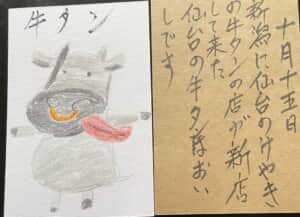 牛タン
十月十五日
新潟に仙台のけやき
の牛タンの店が新店
して来た
仙台の牛タンはおい
しです